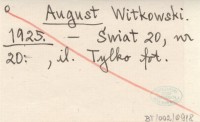 August Witkowski.
1925. - Świat 20, nr
20: , il. Tylko fot.